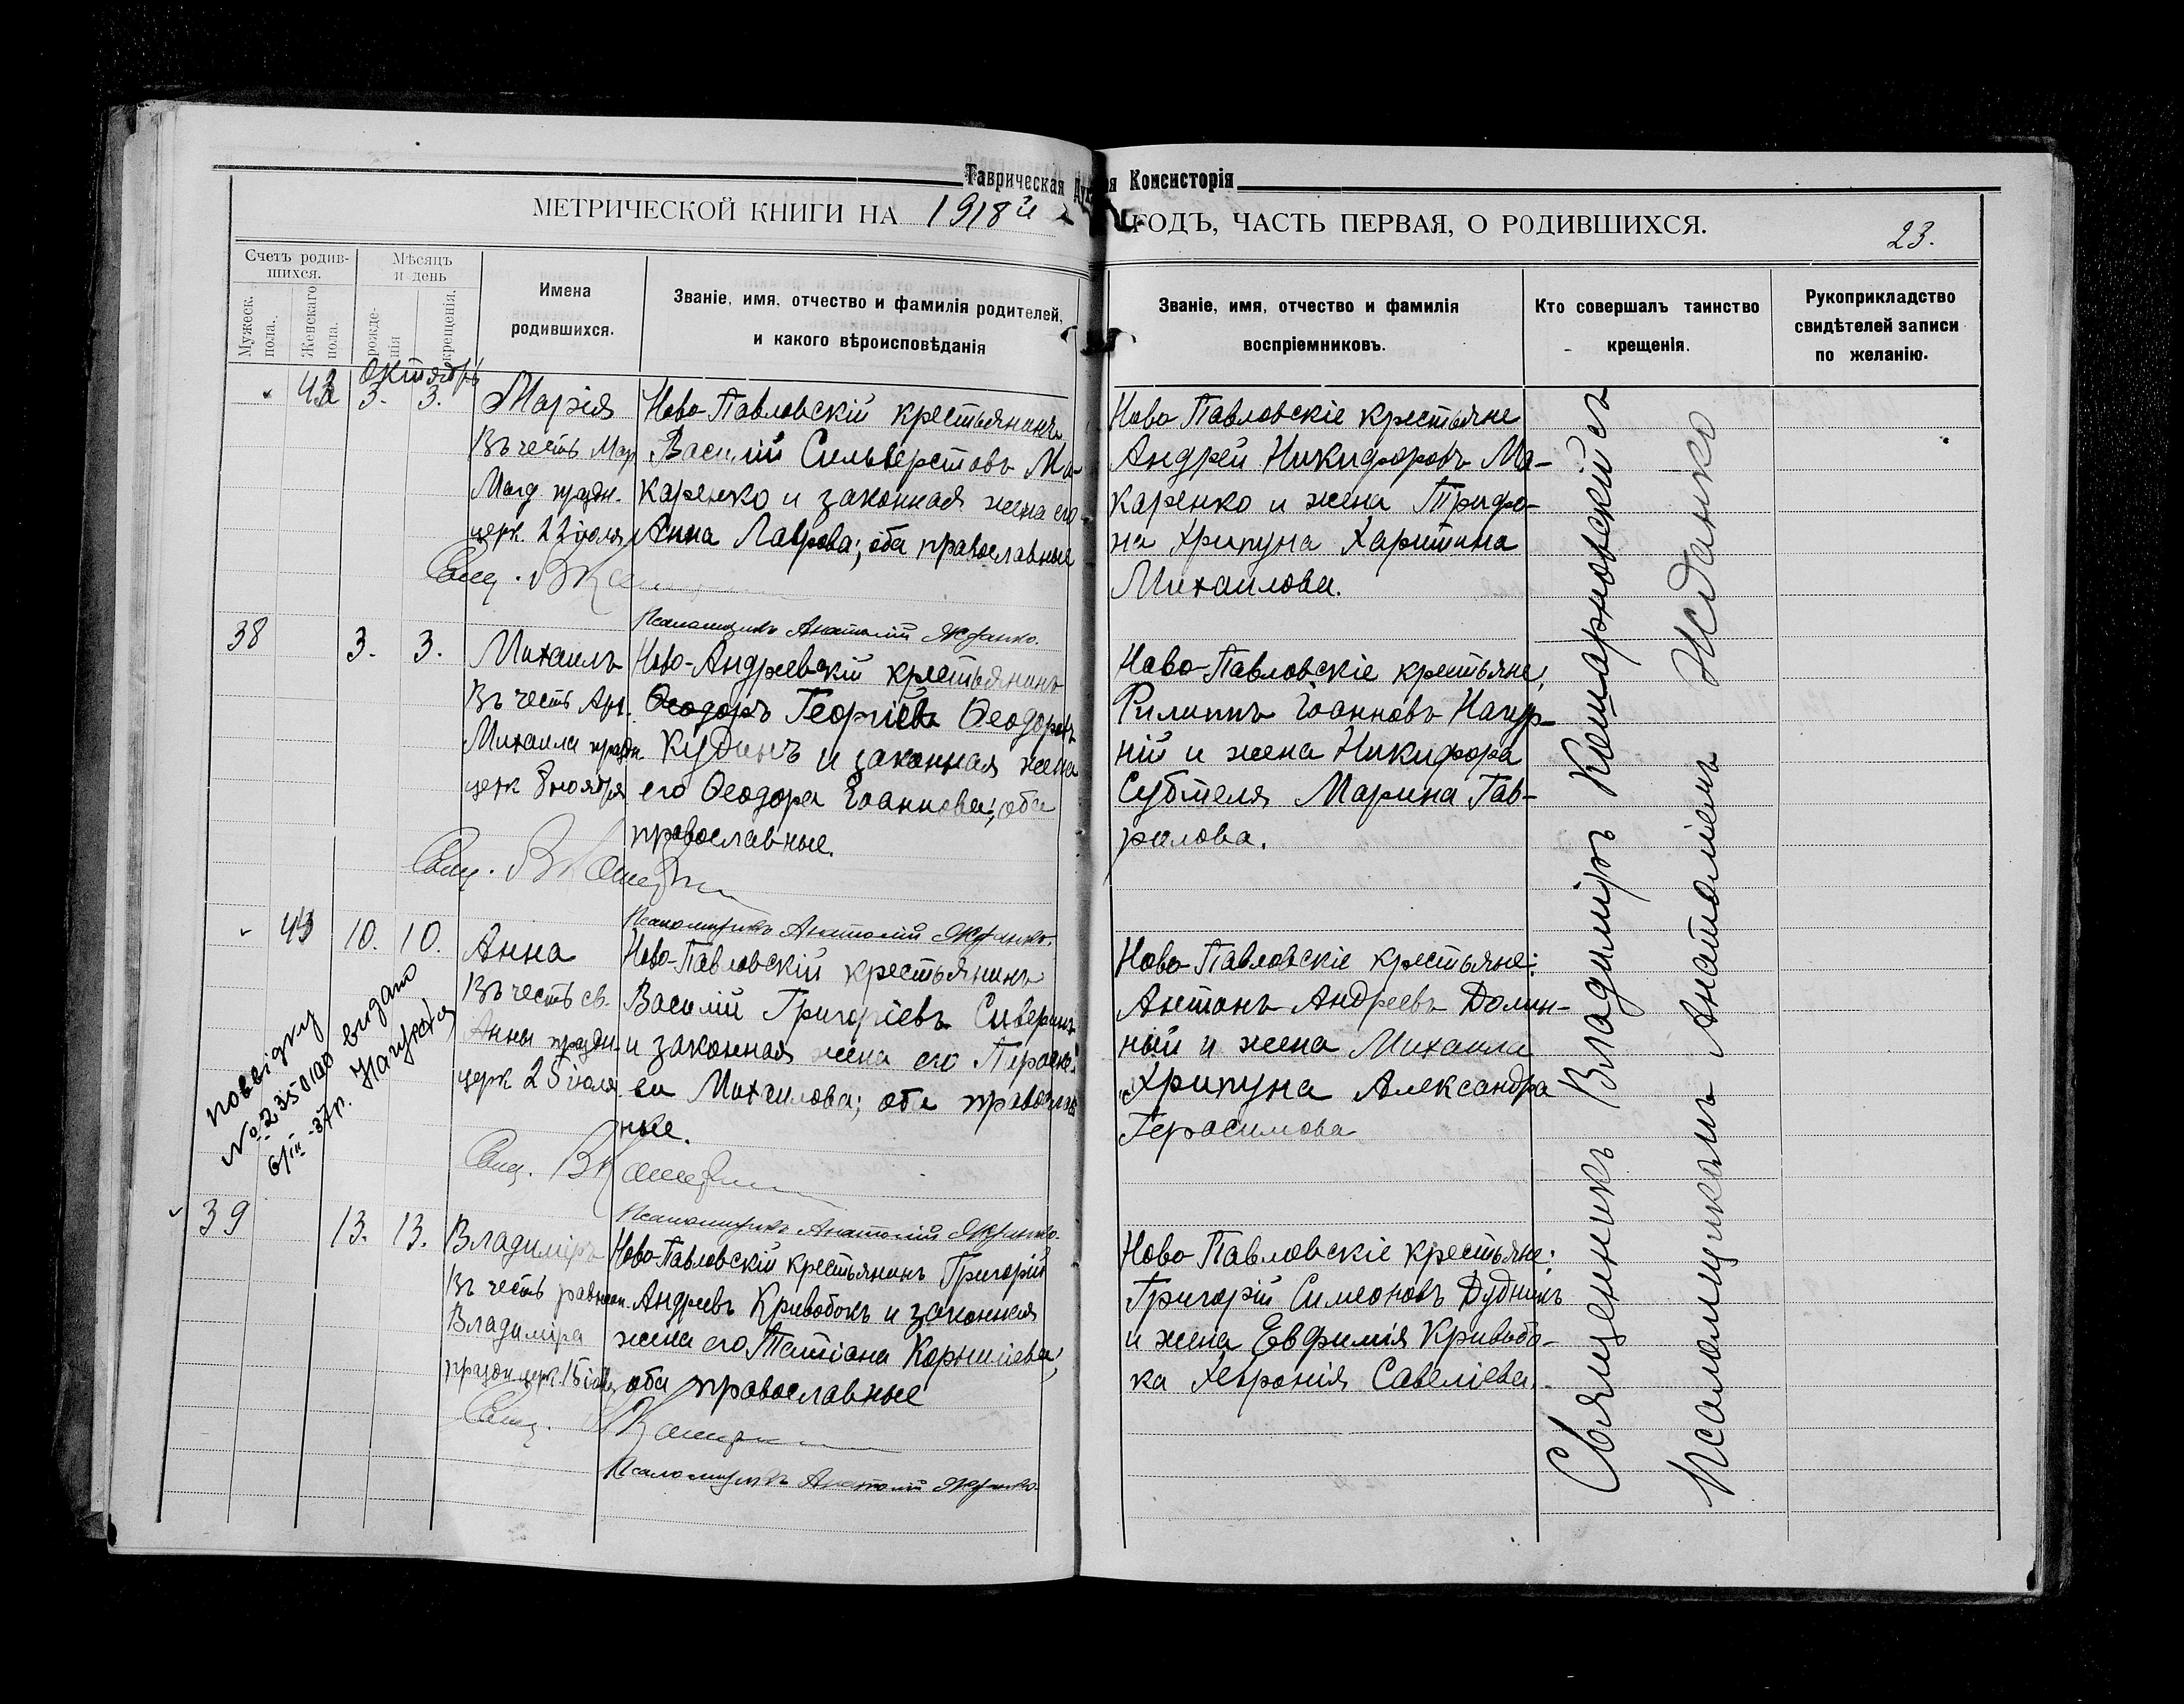 Таврическая Духовная Консисторія
МЕТРИЧЕСКОЙ КНИГИ НА 1918й ГОДЪ, ЧАСТЬ ПЕРВАЯ, О РОДИВШИХСЯ.
23.
Счетъ родив-
шихся.
Мужеск.
пола.
Женскаго
пола.
Мѣсяцъ
и день
рожде-
нія
крещенія.
Имена
родившихся.
Званіе, имя, отчество и фамилія родителей,
и какого вѣроисповѣданія
Званіе, имя, отчество и фамилія
воспріемниковъ.
Кто совершалъ таинство
крещенія.
Рукоприкладство
свидѣтелей записи
по желанію.
Октябрь
42 3. 3.
Марія
Въ честь Мар
Магд праздн.
церк. 22 іюля
Ново-Павловскій крестьянинъ
Василій Сильверстовъ Ма-
каренко и законная жена его
Анна Лаврова; оба православные
Свящ.
Псаломщикъ Анатолій Жданко.
Ново Павловскіе крестьяне
Андрей Никифоровъ Ма-
каренко и жена Трифо-
на Хрипуна Харитина
Михаилова.
38 3. 3.
Михаилъ
Въ честь Арх.
Михаила праздн.
церк 8 ноября
Ново-Андреевскій крестьянинъ
Ѳеодоръ Георгіевъ Ѳеодоровъ
Кудинъ и законная жена
его Ѳеодора Іоаннова; оба
православные.
Свящ.
Псаломщикъ Анатолій Жданко.
Ново-Павловскіе крестьяне,
Филиппъ Іоанновъ Нагур-
ній и жена Никифора
Субтеля Марина Гав-
рилова.
43 10. 10.
Анна
Въ честь св.
Анны праздн.
церк 25 іюля
Ново-Павловскій крестьянинъ
Василій Григоріевъ Сиверинъ
и законная жена его
Михаилова; оба православ
ные.
Свящ.
Псаломщикъ Анатолій Жданко.
Ново-Павловскіе крестьяне:
Антонъ Андреевъ Долин-
ный и жена Михаила
Хрипуна Александра
Герасимова
довідку
№ 2350190 видано
6/III-37р.
39 13. 13.
Владиміръ
Въ честь равноап.
Владиміра
праздн церк. 15 іюля
Ново-Павловскій крестьянинъ Григорій
Андреевъ Кривобокъ и законная
жена его Татіана Корниліева;
оба православные
Свящ.
Псаломщикъ Анатолій Жданко.
Ново Павловскіе крестьяне:
Григорій Симеоновъ Дудникъ
и жена Евфимія Кривобо-
ка Хевронія Савеліева.
Священникъ Владиміръ Кошарновскій съ
Псаломщикомъ Анатоліемъ Жданко